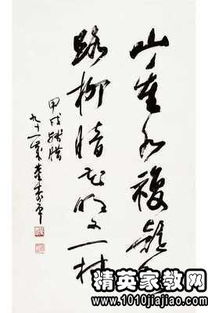 山重水複疑
路柳暗花明又一村
甲戌
九十一叟董壽平
精英家教网
www.1010jiajiao.com